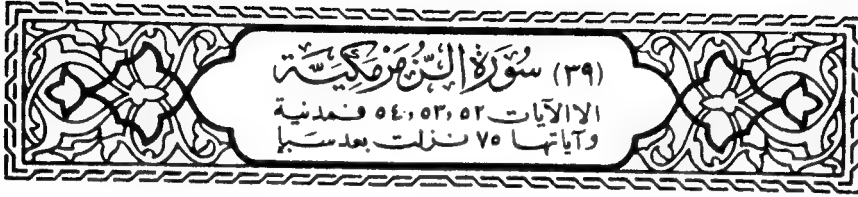 (٣٩) سُورَة الزُّمَر مَكِّيَّة
الا الآيات ٥٢، ٥٣، ٥٤ فمدنية
وآياتها ٧٥ نزلت بعد سَبإ